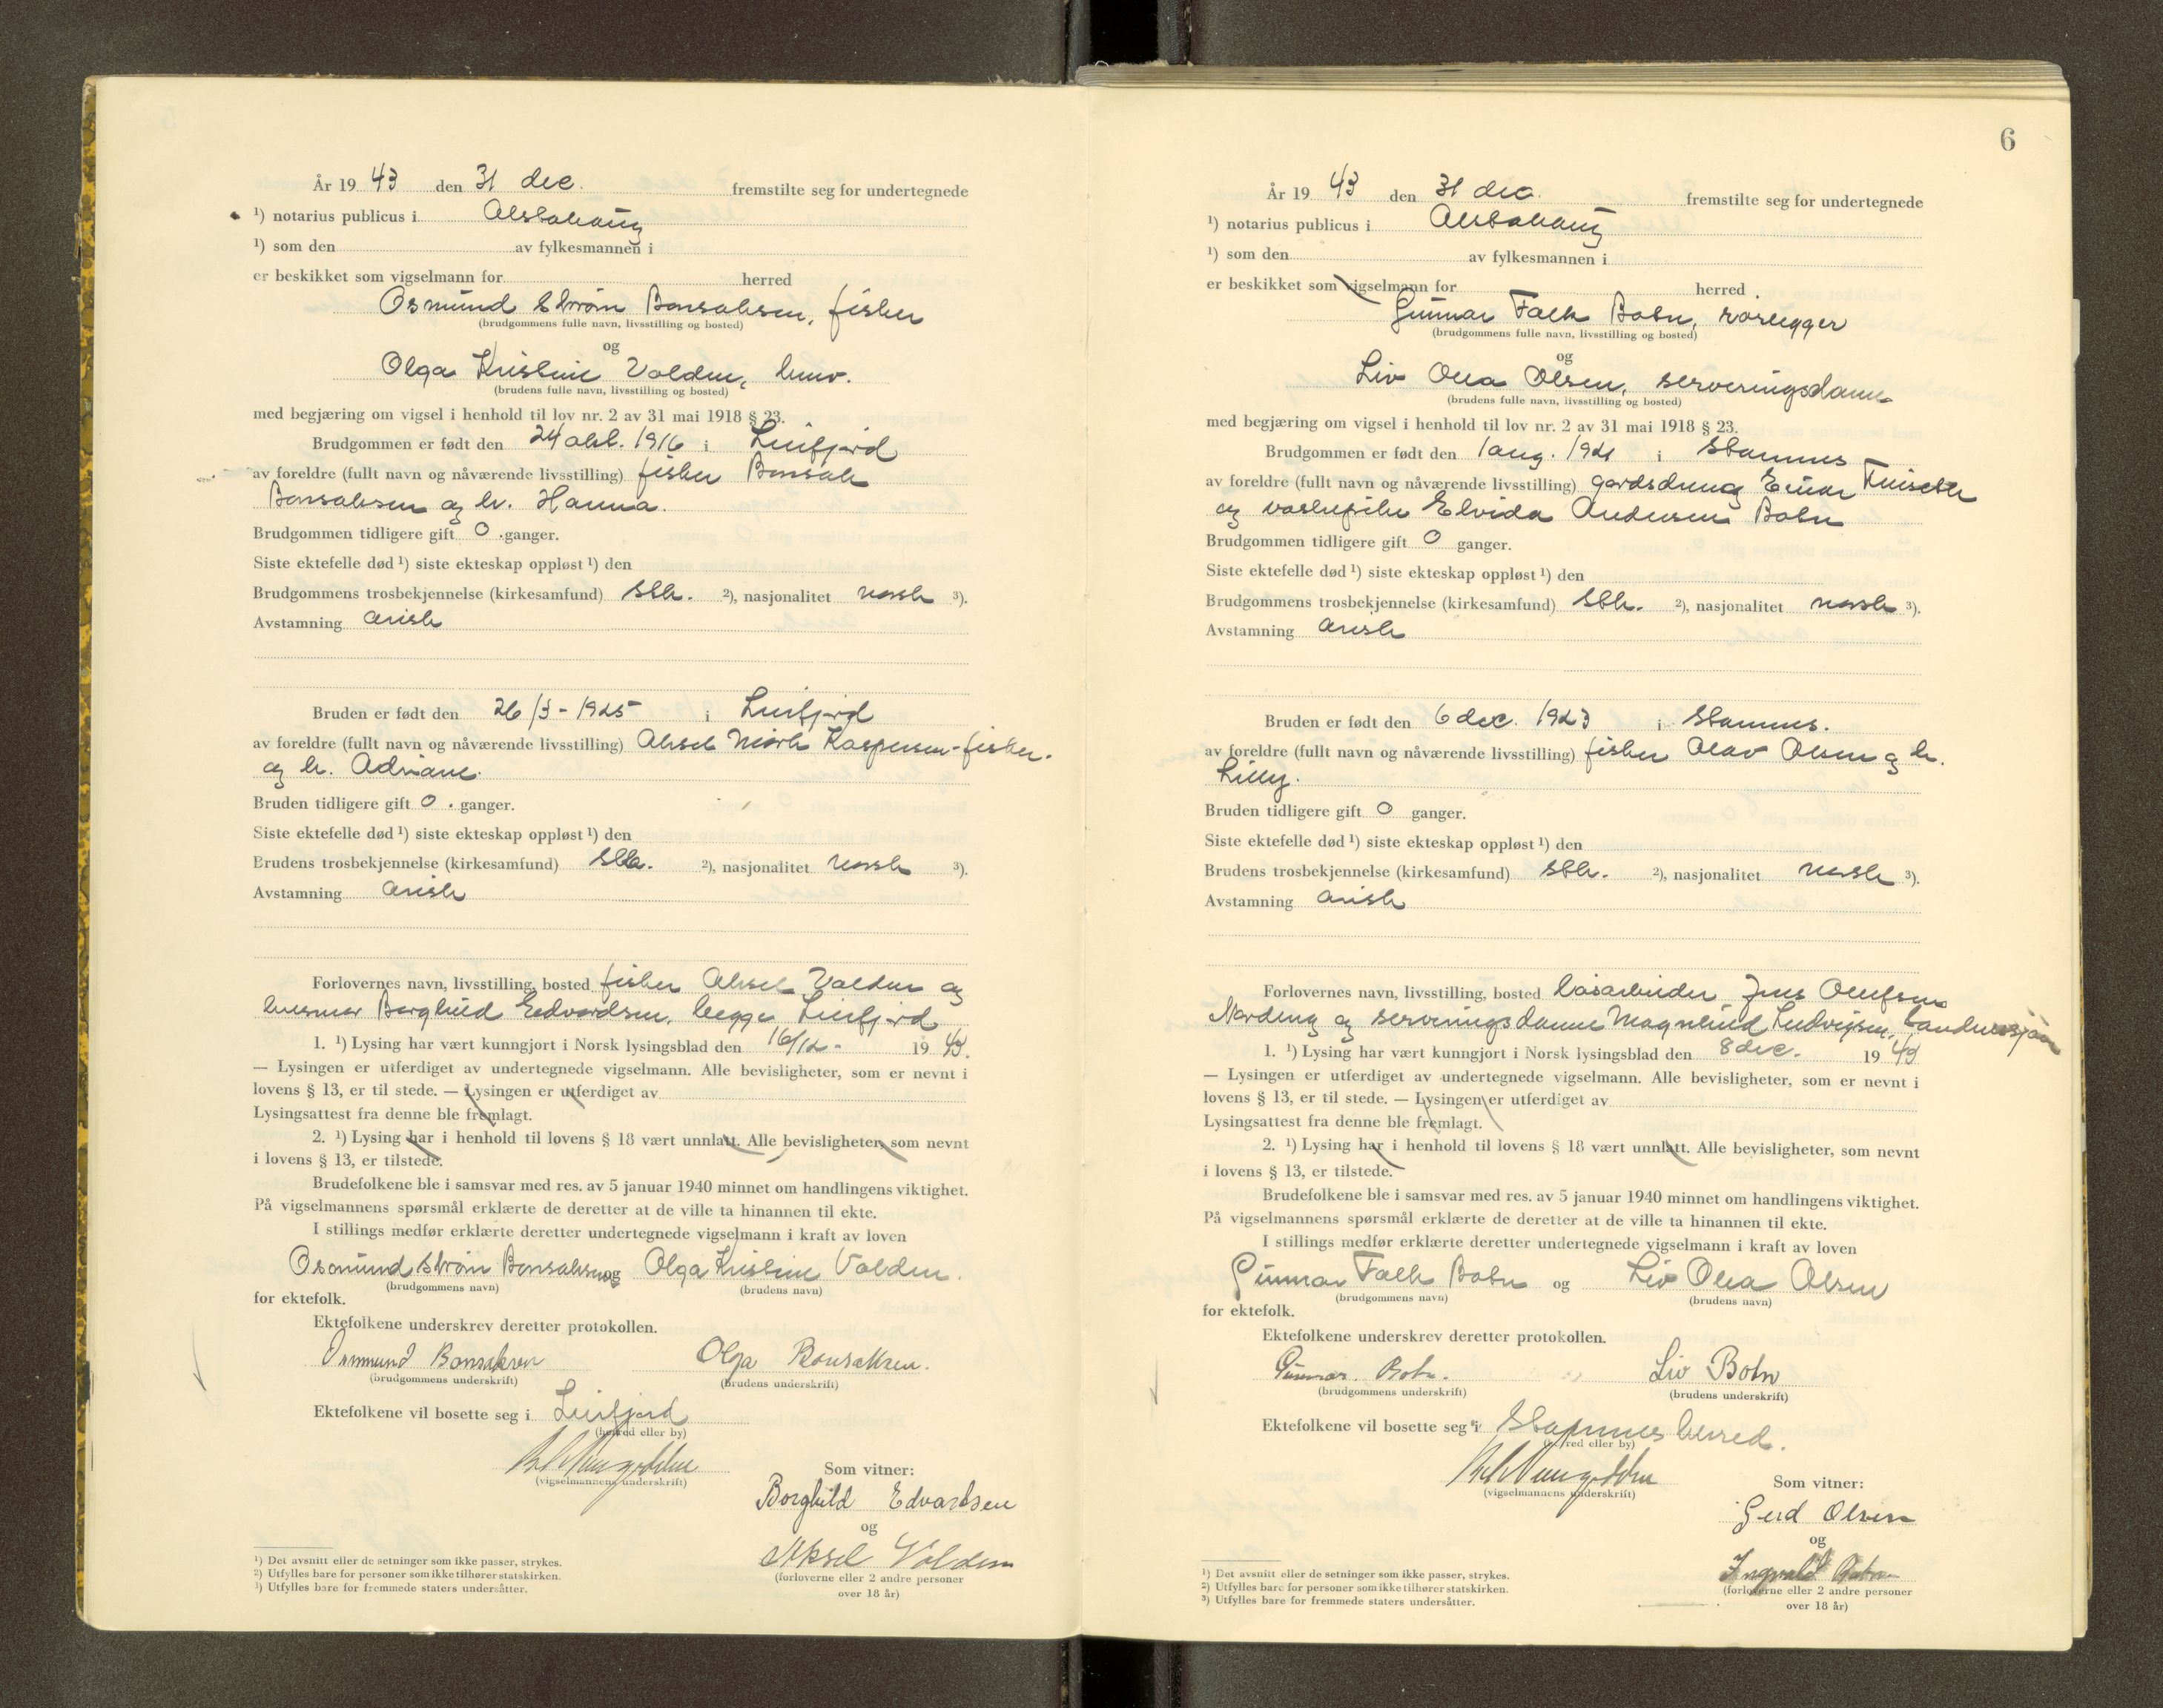 År 19 43 den 31 dec. fremstilte seg for undertegnede
¹) notarius publicus i Alstahaug
¹) som den av fylkesmannen i
er beskikket som vigselmann for herred
Osmund Strøm Bonsaksen, fisker
(brudgommens fulle navn, livsstilling og bosted)
og
Olga Kristine Valden, husv.
(brudens fulle navn, livsstilling og bosted)
med begjæring om vigsel i henhold til lov nr. 2 av 31 mai 1918 § 23.
Brudgommen er født den 24 okt. 1916 i Leirfjord
av foreldre (fullt navn og nåværende livsstilling) fisker Bonsak
Bonsaksen og h. Hanna.
Brudgommen tidligere gift 0 . ganger.
Siste ektefelle død ¹) siste ekteskap oppløst ¹) den
Brudgommens trosbekjennelse (kirkesamfund) Stk. ²), nasjonalitet norsk ³).
Avstamning arisk
Bruden er født den 26/3 - 1925 i Leirfjord
av foreldre (fullt navn og nåværende livsstilling) Aksel Mørk Kaspersen - fisker.
og h. Adriane.
Bruden tidligere gift 0 . ganger.
Siste ektefelle død ¹) siste ekteskap oppløst ¹) den
Brudens trosbekjennelse (kirkesamfund) Stk. ²), nasjonalitet norsk ³).
Avstamning arisk
Forlovernes navn, livsstilling, bosted fisker Aksel Valden og
husmor Borghild Edvardsen, begge Leirfjord
1. ¹) Lysing har vært kunngjort i Norsk lysingsblad den 16/12 - 19 43.
— Lysingen er utferdiget av undertegnede vigselmann. Alle bevisligheter, som er nevnt i
lovens § 13, er til stede. — Lysingen er utferdiget av
Lysingsattest fra denne ble fremlagt.
2. ¹) Lysing har i henhold til lovens § 18 vært unnlatt. Alle bevisligheter, som nevnt
i lovens § 13, er tilstede.
Brudefolkene ble i samsvar med res. av 5 januar 1940 minnet om handlingens viktighet.
På vigselmannens spørsmål erklærte de deretter at de ville ta hinannen til ekte.
I stillings medfør erklærte deretter undertegnede vigselmann i kraft av loven
Osmund Strøm Bonsaksen og Olga Kristine Valden.
(brudgommens navn) (brudens navn)
for ektefolk.
Ektefolkene underskrev deretter protokollen.
Osmund Bonsaksen Olga Bonsaksen.
(brudgommens underskrift) (brudens underskrift)
Ektefolkene vil bosette seg i Leirfjord
(herred eller by)
(vigselmannens underskrift)
Som vitner:
Borghild Edvardsen
og
Aksel Valden
(forloverne eller 2 andre personer
over 18 år)
¹) Det avsnitt eller de setninger som ikke passer, strykes.
²) Utfylles bare for personer som ikke tilhører statskirken.
³) Utfylles bare for fremmede staters undersåtter.
6
År 19 43 den 31 dec. fremstilte seg for undertegnede
¹) notarius publicus i Alstahaug
¹) som den av fylkesmannen i
er beskikket som vigselmann for herred
Gunnar Falk Botn, rørlegger
(brudgommens fulle navn, livsstilling og bosted)
og
Liv Olea Olsen, serveringsdame
(brudens fulle navn, livsstilling og bosted)
med begjæring om vigsel i henhold til lov nr. 2 av 31 mai 1918 § 23.
Brudgommen er født den 1 aug. 1921 i Stamnes
av foreldre (fullt navn og nåværende livsstilling) gardsdreng Einar
og vaskepike Elvida Andersen Botn
Brudgommen tidligere gift 0 ganger.
Siste ektefelle død ¹) siste ekteskap oppløst ¹) den
Brudgommens trosbekjennelse (kirkesamfund) Stk. ²), nasjonalitet norsk ³).
Avstamning arisk
Bruden er født den 6 dec. 1923 i Stamnes.
av foreldre (fullt navn og nåværende livsstilling) fisker Olav Olsen og h.
Lilly.
Bruden tidligere gift 0 ganger.
Siste ektefelle død ¹) siste ekteskap oppløst ¹) den
Brudens trosbekjennelse (kirkesamfund) Stk. ²), nasjonalitet norsk ³).
Avstamning arisk
Forlovernes navn, livsstilling, bosted løsarbeider Jens Olufsen
Nordeng og serveringsdame Magnhild Ludvigsen, Sandnessjøen
1. ¹) Lysing har vært kunngjort i Norsk lysingsblad den 8 dec. 19 43
— Lysingen er utferdiget av undertegnede vigselmann. Alle bevisligheter, som er nevnt i
lovens § 13, er til stede. — Lysingen er utferdiget av
Lysingsattest fra denne ble fremlagt.
2. ¹) Lysing har i henhold til lovens § 18 vært unnlatt. Alle bevisligheter, som nevnt
i lovens § 13, er tilstede.
Brudefolkene ble i samsvar med res. av 5 januar 1940 minnet om handlingens viktighet.
På vigselmannens spørsmål erklærte de deretter at de ville ta hinannen til ekte.
I stillings medfør erklærte deretter undertegnede vigselmann i kraft av loven
Gunnar Falk Botn og Liv Olea Olsen
(brudgommens navn) (brudens navn)
for ektefolk.
Ektefolkene underskrev deretter protokollen.
Gunnar Botn. Liv Botn
(brudgommens underskrift) (brudens underskrift)
Ektefolkene vil bosette seg i Stamnes herred.
(herred eller by)
(vigselmannens underskrift)
Som vitner:
Gerd Olsen
og
Ingvald Botn
(forloverne eller 2 andre personer
over 18 år)
¹) Det avsnitt eller de setninger som ikke passer, strykes.
²) Utfylles bare for personer som ikke tilhører statskirken.
³) Utfylles bare for fremmede staters undersåtter.